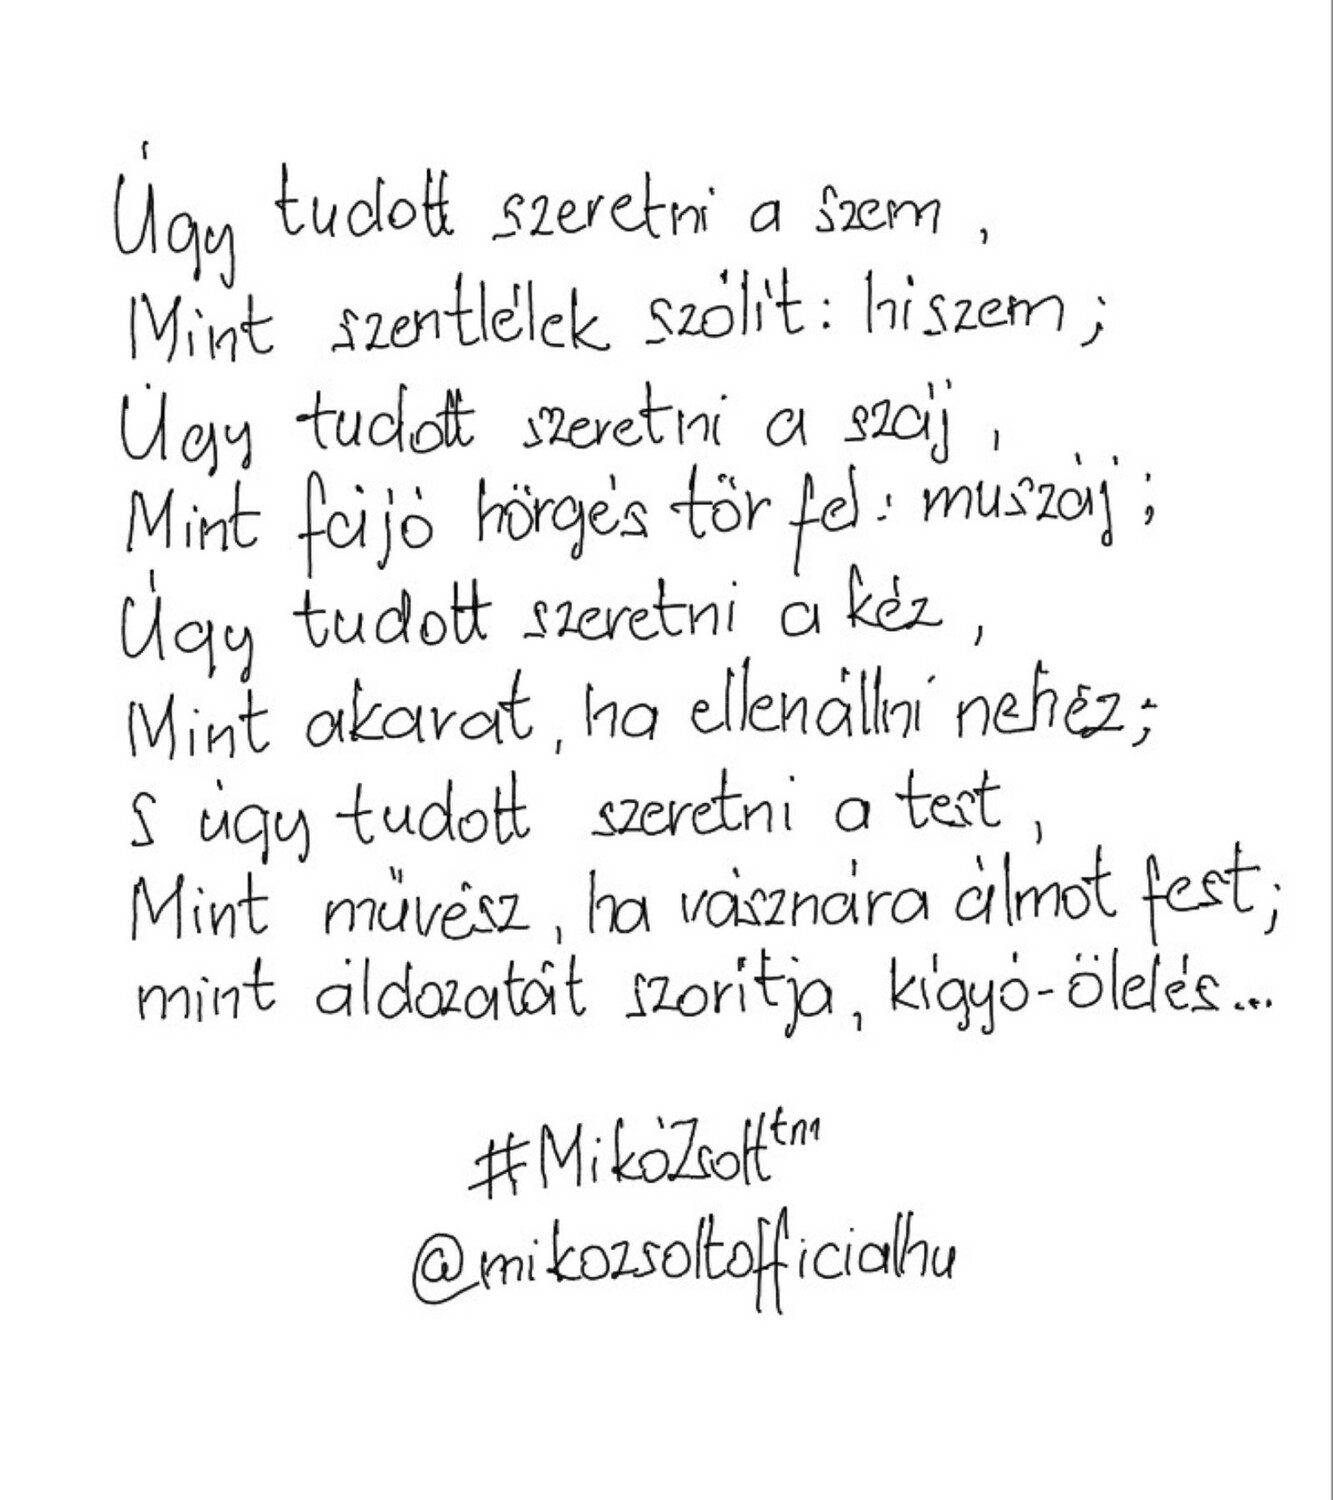 Úgy tudott szeretni a szem,
Mint szentlélek szólít: hiszem;
Úgy tudott szeretni a száj,
Mint fájó hörgés tör fel: muszáj;
Úgy tudott szeretni a kéz,
Mint akarat, ha ellenállni nehéz;
S úgy tudott szeretni a test,
Mint művész, ha vásznára álmot fest;
mint áldozatát szorítja, kígyó-ölelés...
#MikóZsolt™
@mikozsoltofficialhu